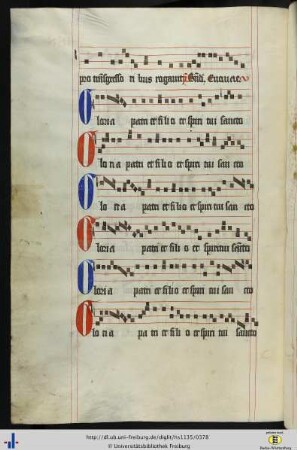 pro transgresso ri bus rogauit p̄ Bñd. Euouae
Gloria patri et fi li o et spiri tui sancto
Glo ri a patri et fi li o et spiri tui san cto
Glo ri a patri et fi li o et spiritui san cto
Gloria patri et fili o et spiritui sancto
Gloria patri et fi li o et spiri tui san cto
Glo ri a pa tri et fi li o et spiri tui sancto
http://dl.ub.uni-freiburg.de/diglit/hs1135/0378
© Universitätsbibliothek Freiburg